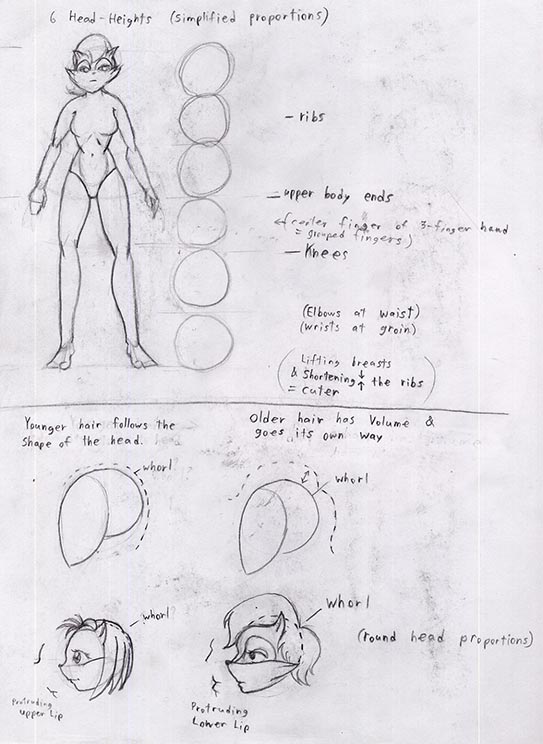 6 Head-Heights (simplified proportions)
- ribs
- upper body ends
(center finger of 3-finger hand
= grouped fingers)
- Knees
(Elbows at waist)
(wrists at groin)
(Lifting breasts
& Shortening ↓↑ the ribs
= cuter)
Younger hair follows the
Shape of the head.
Older hair has Volume &
goes its own way
whorl
whorl
whorl
whorl
(round head proportions)
Protruding
upper Lip
Protruding
Lower Lip